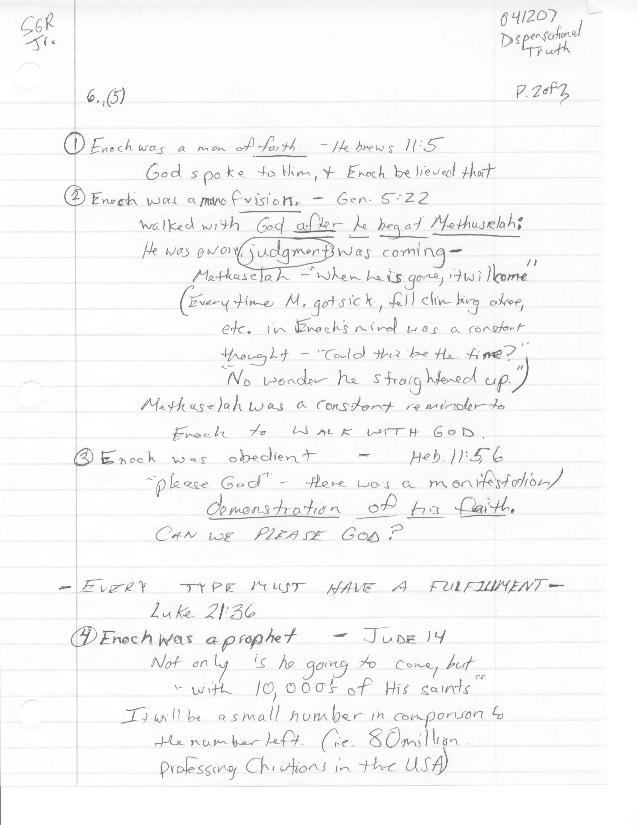 SGR
Jr.
041207
Dispensational
Truth
P. 2 of 3
6., (5)
① Enoch was a man of faith - Hebrews 11:5
God spoke to him, & Enoch believed that
② Enoch was a man of vision. - Gen. 5:22
walked with God after he begat Methuselah:
He was aware judgment was coming -
Methuselah - "When he is gone, it will come"
(Every time M. got sick, fell climbing a tree,
etc. in Enoch's mind was a constant
thought - "Could this be the time?"
"No wonder he straightened up.")
Methuselah was a constant reminder to
Enoch to WALK WITH GOD.
③ Enoch was obedient - Heb. 11:5,6
"please God" - there was a manifestation/
demonstration of his faith.
CAN WE PLEASE GOD?
- EVERY TYPE MUST HAVE A FULFILLMENT -
Luke 21:36
④ Enoch was a prophet - JUDE 14
Not only is he going to come, but
"with 10,000's of His saints"
It will be a small number in comparison to
the number left. (i.e. 80 million
professing Christians in the USA)